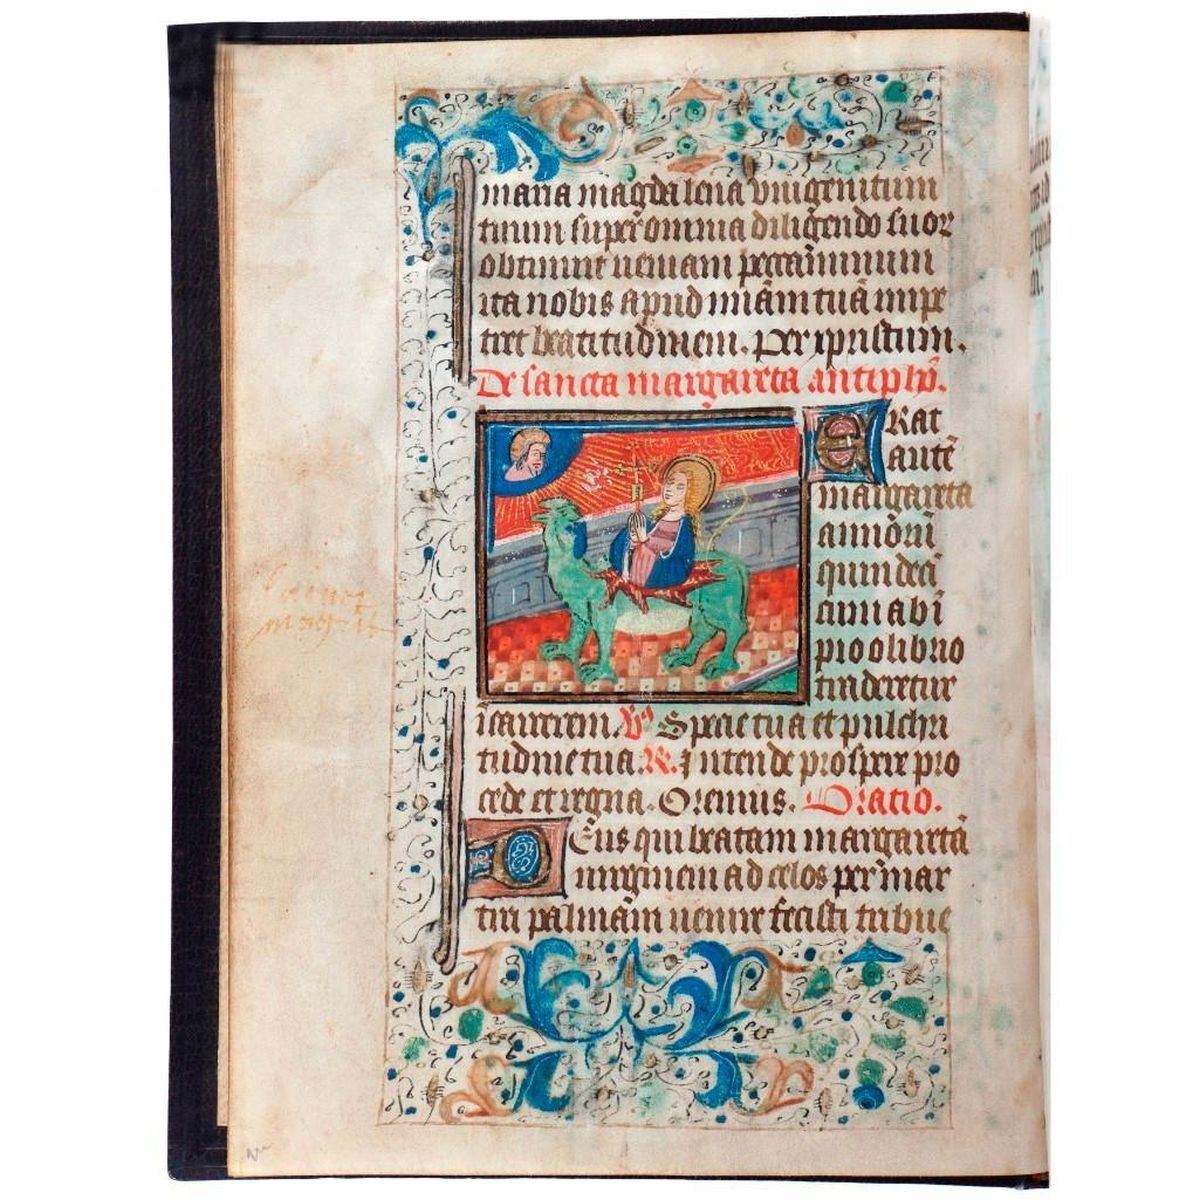 maria magdalena vnigenitum
tuum sup̄er omnia diligendo suor
obtinuit ueniam peccāminum
ita nobis apud miām tuā impe
tret beatitudinem. Per xpristum.
De sancta margareta antiphō.
ERAT
autē
margareta
annorū
quindeci
cum ab ī
pio olibrio
traderetur
ī carcerem. V̄s Specie tua et pulchri
tudine tua. R. Intende prospere pro
cede et regna. Oremus. Oratio.
DEus qui beatam margaretā
uirginem ad celos per mar
tiri palmām uenire fecisti tribue